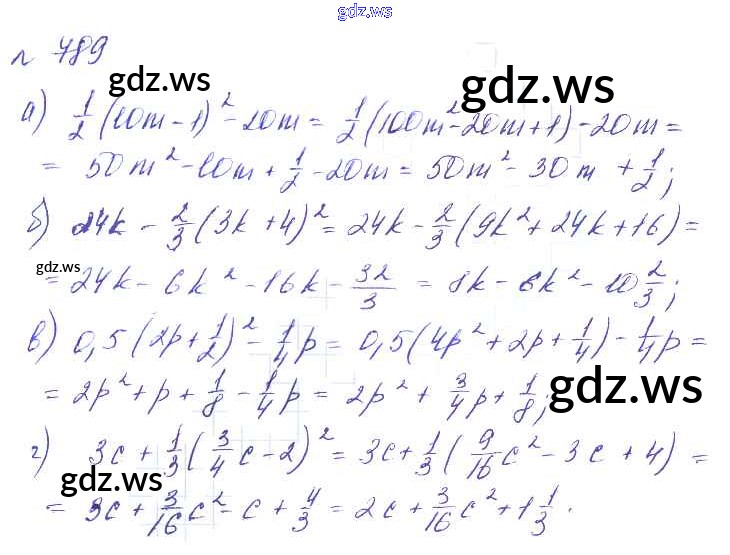 gdz.ws
№ 789
gdz.ws
gdz.ws
а) 1/2 (10m - 1)² - 20m = 1/2 (100m² - 20m + 1) - 20m =
= 50m² - 10m + 1/2 - 20m = 50m² - 30m + 1/2;
б) 24k - 2/3 (3k + 4)² = 24k - 2/3 (9k² + 24k + 16) =
gdz.ws
= 24k - 6k² - 16k - 32/3 = 8k - 6k² - 10 2/3;
в) 0,5 (2p + 1/2)² - 1/4 p = 0,5 (4p² + 2p + 1/4) - 1/4 p =
gdz.ws
= 2p² + p + 1/8 - 1/4 p = 2p² + 3/4 p + 1/8;
г) 3c + 1/3 (3/4 c - 2)² = 3c + 1/3 (9/16 c² - 3c + 4) =
gdz.ws
= 3c + 3/16 c² - c + 4/3 = 2c + 3/16 c² + 1 1/3.